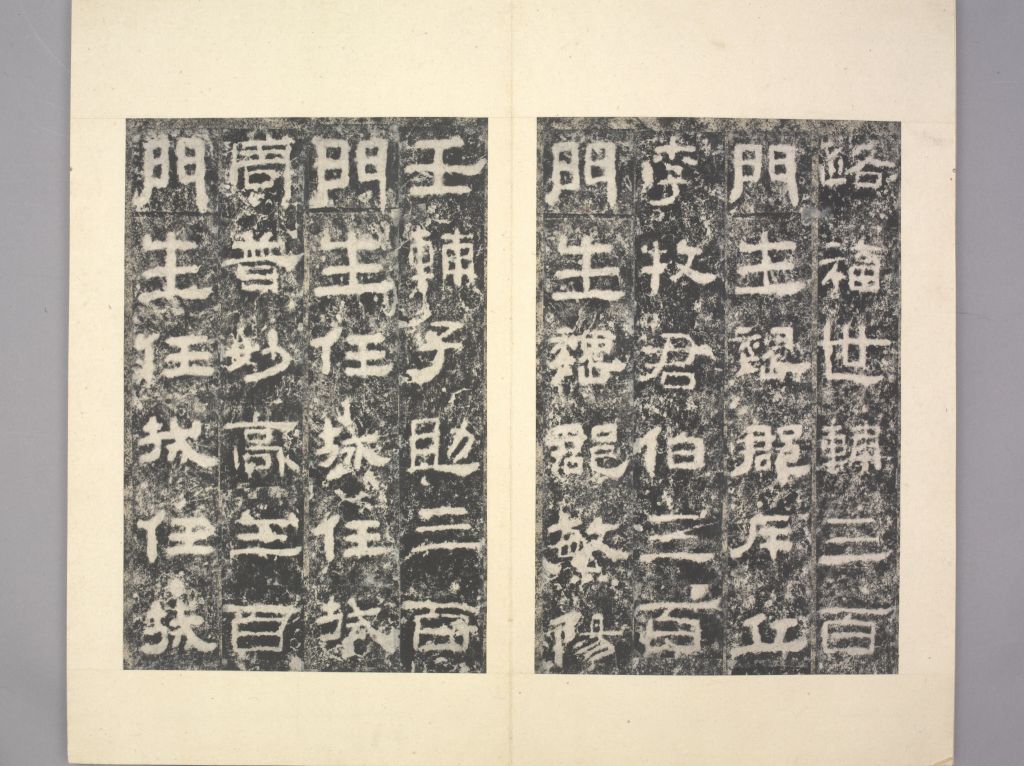 路福世輔三百
門生魏郡斥丘
李牧君伯三百
門生魏郡繁陽
王輔子助三百
門生任城任城
周普妙高二百
門生任城任城